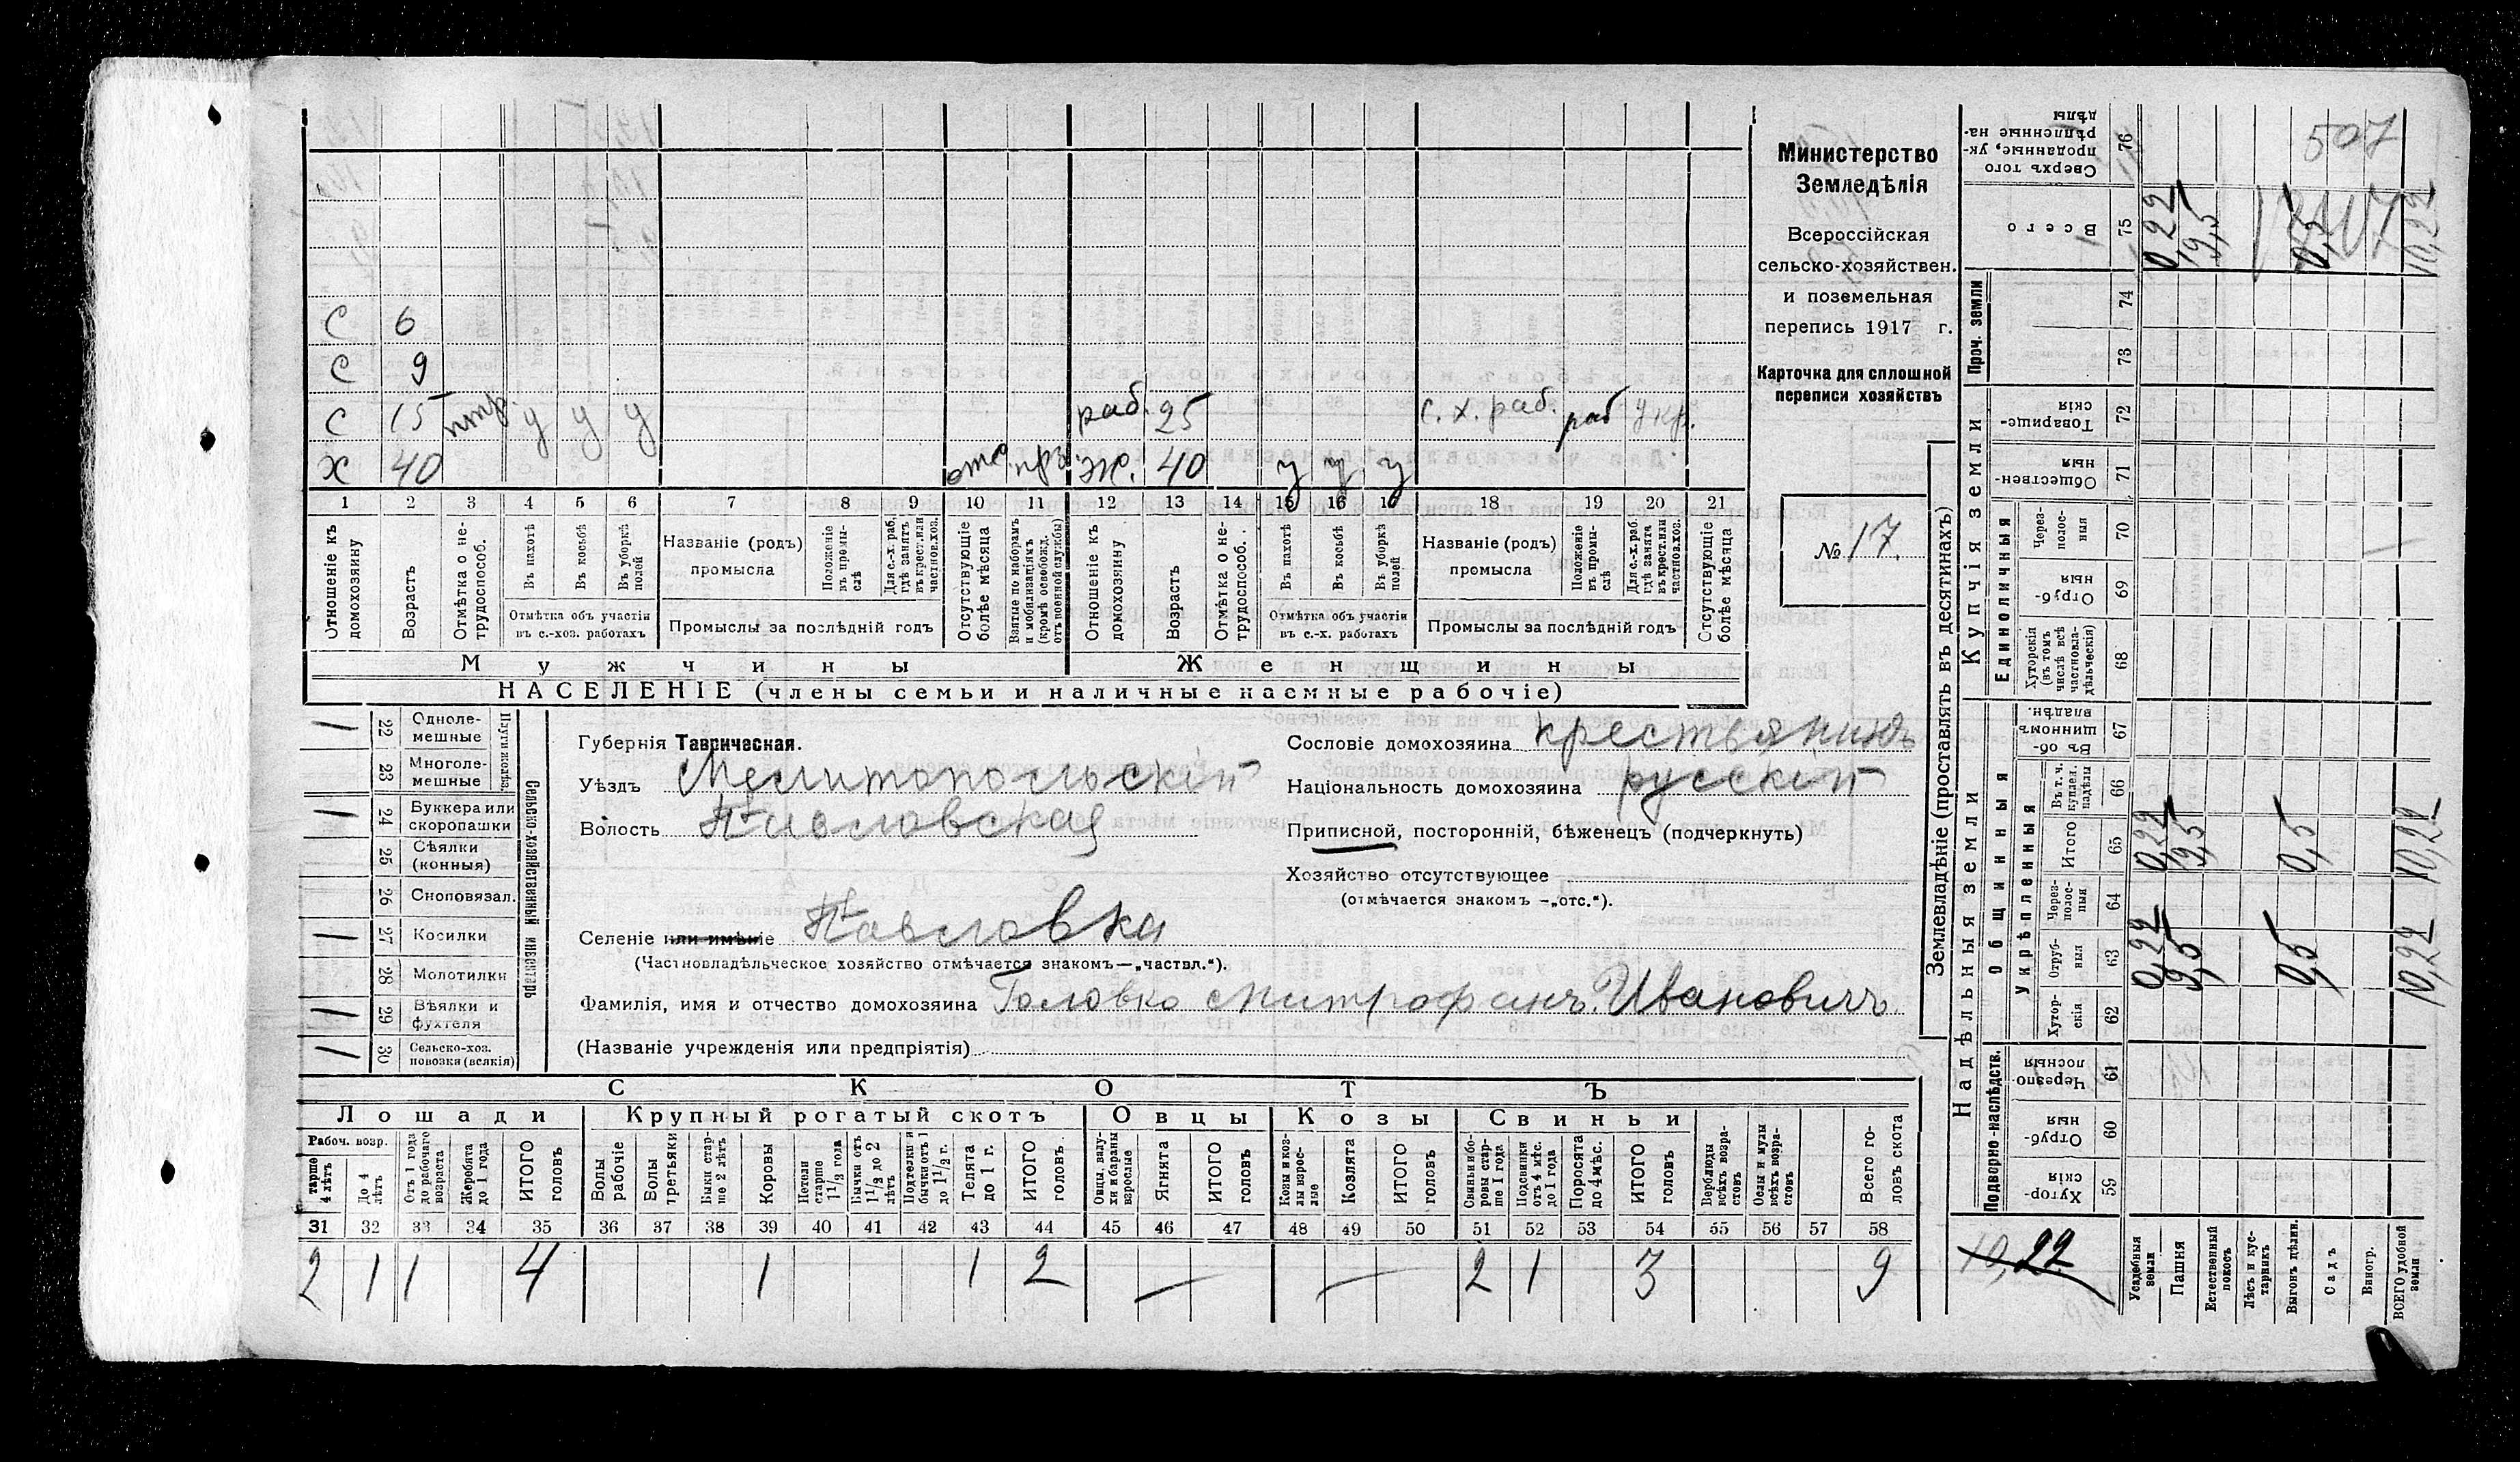 507
Министерство
Земледѣлія
Всероссійская
сельско-хозяйствен.
и поземельная
перепись 1917 г.
Карточка для сплошной
переписи хозяйствъ
№ 17.
С 6
С 9
С 15 у у у раб. 25 с. х. раб. раб укр.
Х 40 Ж. 40 у у у
1 2 3 4 5 6 7 8 9 10 11 12 13 14 15 16 17 18 19 20 21
Отношеніе къ домохозяину
Возрастъ
Отмѣтка о не-трудоспособ.
Въ пахотѣ
Въ косьбѣ
Въ уборкѣ полей
Отмѣтка объ участіи въ с.-хоз. работахъ
Названіе (родъ) промысла
Положеніе въ промы-слѣ
Для с.-х. раб. гдѣ занятъ въ крест. или частнов. хоз.
Промыслы за послѣдній годъ
Отсутствующіе болѣе мѣсяца
Взятые по наборамъ и мобилизаціямъ (кромѣ освобожд. отъ военной службы)
Отношеніе къ домохозяину
Возрастъ
Отмѣтка о не-трудоспособ.
Въ пахотѣ
Въ косьбѣ
Въ уборкѣ полей
Отмѣтка объ участіи въ с.-х. работахъ
Названіе (родъ) промысла
Положеніе въ промы-слѣ
Для с.-х. раб. гдѣ занята въ крест. или частнов. хоз.
Промыслы за послѣдній годъ
Отсутствующіе болѣе мѣсяца
Мужчины Женщины
НАСЕЛЕНІЕ (члены семьи и наличные наемные рабочіе)
22 Одноле-мешные
23 Многоле-мешные
24 Буккера или скоропашки
25 Сѣялки (конныя)
26 Сноповязал.
27 Косилки
28 Молотилки
29 Вѣялки и фухтеля
30 Сельско-хоз. повозки (всякія)
Сельско-хозяйственный инвентарь
Губернія Таврическая.
Уѣздъ Мелитопольскій
Волость Павловская
Селеніе или имѣніе Павловка
(Частновладѣльческое хозяйство отмѣчается знакомъ—„частвл.“).
Фамилія, имя и отчество домохозяина Головко Митрофанъ Ивановичъ.
(Названіе учрежденія или предпріятія)
Сословіе домохозяина крестьянинъ
Національность домохозяина русскій
Приписной, посторонній, бѣженецъ (подчеркнуть)
Хозяйство отсутствующее
(отмѣчается знакомъ -„отс.“).
СКОТЪ
Лошади Крупный рогатый скотъ Овцы Козы Свиньи
Рабоч. возр.
тарше 4 лѣтъ
До 4 лѣтъ
Отъ 1 года до рабочаго возраста
Жеребята до 1 года
ИТОГО головъ
Волы рабочіе
Волы третьяки
Быки стар-ше 2 лѣтъ
Коровы
Нетели старше 1½ года
Бычки отъ 1½ до 2 лѣтъ
Подтелки и бычки отъ 1 до 1½ г.
Телята до 1 г.
ИТОГО головъ.
Овцы, валу-хи и бараны взрослые
Ягнята
ИТОГО головъ
Козы и коз-лы взрос-лые
Козлята
ИТОГО головъ
Свиньи бо-ровы стар-ше 1 года
Подсвинки отъ 4 мѣс. до 1 года
Поросята до 4 мѣс.
ИТОГО головъ
Верблюды всѣхъ возра-стовъ
Ослы и мулы всѣхъ возра-стовъ
Всего го-ловъ скота
31 32 33 34 35 36 37 38 39 40 41 42 43 44 45 46 47 48 49 50 51 52 53 54 55 56 57 58
2 1 1 4 1 1 2 — — 2 1 3 9
Землевладѣніе (проставлять въ десятинахъ)
Надѣльныя земли Купчія земли
Подворно-наслѣдств.
Общиныя
Укрѣпленныя
Единоличныя
Проч. земли
59 Хутор-скія
60 Отруб-ныя
61 Черезпо-лосныя
62 Хутор-скія
63 Отруб-ныя
64 Через-полос-ныя
65 Итого
66 Въ т. ч. куплен. надѣлы
67 Въ об-щинномъ владѣн.
68 Хуторскія (въ томъ числѣ всѣ частновла-дѣльческія)
69 Отруб-ныя
70 Через-полос-ныя
71 Обществен-ныя
72 Товарище-скія
73
74
75 Всего
76 Сверхъ того проданные, ук-рѣпленные на-дѣлы
Усадебныя земли
Пашня
Естественный покосъ
Лѣсъ и кус-тарникъ
Выгонъ дѣлин.
Садъ
Виногр.
ВСЕГО удобной земли
10,22
0,22 9,5 0,5 10,22
0,22 9,5 0,5 10,22
0,22 9,5 0,5 10,22